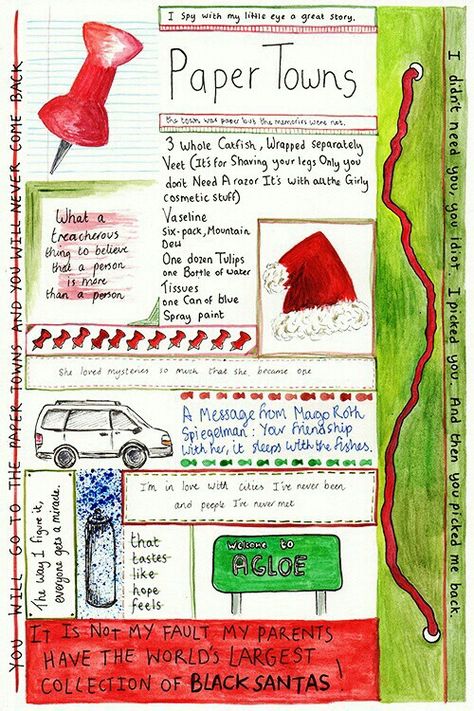 I spy with my little eye a great story.
Paper Towns
the town was paper but the memories were not.
3 Whole Catfish, Wrapped separately
Veet (It's for Shaving your legs Only you
don't Need A razor It's with all the Girly
cosmetic stuff)
Vaseline
six-pack, Mountain
Dew
One dozen Tulips
one Bottle of Water
Tissues
one Can of blue
Spray paint
What a
treacherous
thing to believe
that a person
is more
than a person
She loved mysteries so much that she became one
A Message from Mago Roth
Spiegelman: Your friendship
with her, it sleeps with the fishes.
The way I figure it,
everyone gets a miracle
I'm in love with cities I've never been
and people I've never met
that
tastes
like
hope
feels
Welcome to
AGLOE
IT IS NOT MY FAULT MY PARENTS
HAVE THE WORLD'S LARGEST
COLLECTION OF BLACK SANTAS!
YOU WILL GO TO THE PAPER TOWNS AND YOU WILL NEVER COME BACK
I didn't need you, you idiot. I picked you. And then you picked me back.